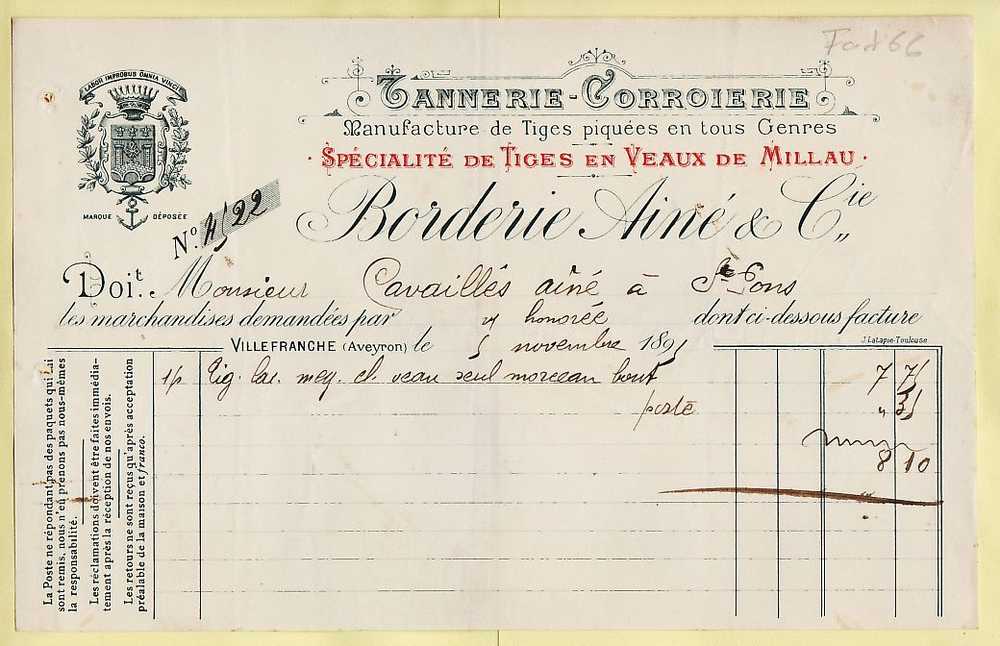 LABOR IMPROBUS OMNIA VINCIT
MARQUE DÉPOSÉE
TANNERIE-CORROIERIE
Manufacture de Tiges piquées en tous Genres
SPÉCIALITÉ DE TIGES EN VEAUX DE MILLAU
Borderie Ainé & Cie
No 4522
Doit. Monsieur Cavaillés ainé à St Pons
les marchandises demandées par honorée dont ci-dessous facture
VILLEFRANCHE (Aveyron) le 5 novembre 1895
J. Latapie-Toulouse
1/p Tig. lac. veau seul morceau bout 7 75
poste " 35
8 10
La Poste ne répondant pas des paquets qui lui
sont remis, nous n'en prenons pas nous-mêmes
la responsabilité.
Les réclamations doivent être faites immédia-
tement après la réception de nos envois.
Les retours ne sont reçus qu'après acceptation
préalable de la maison et franco.